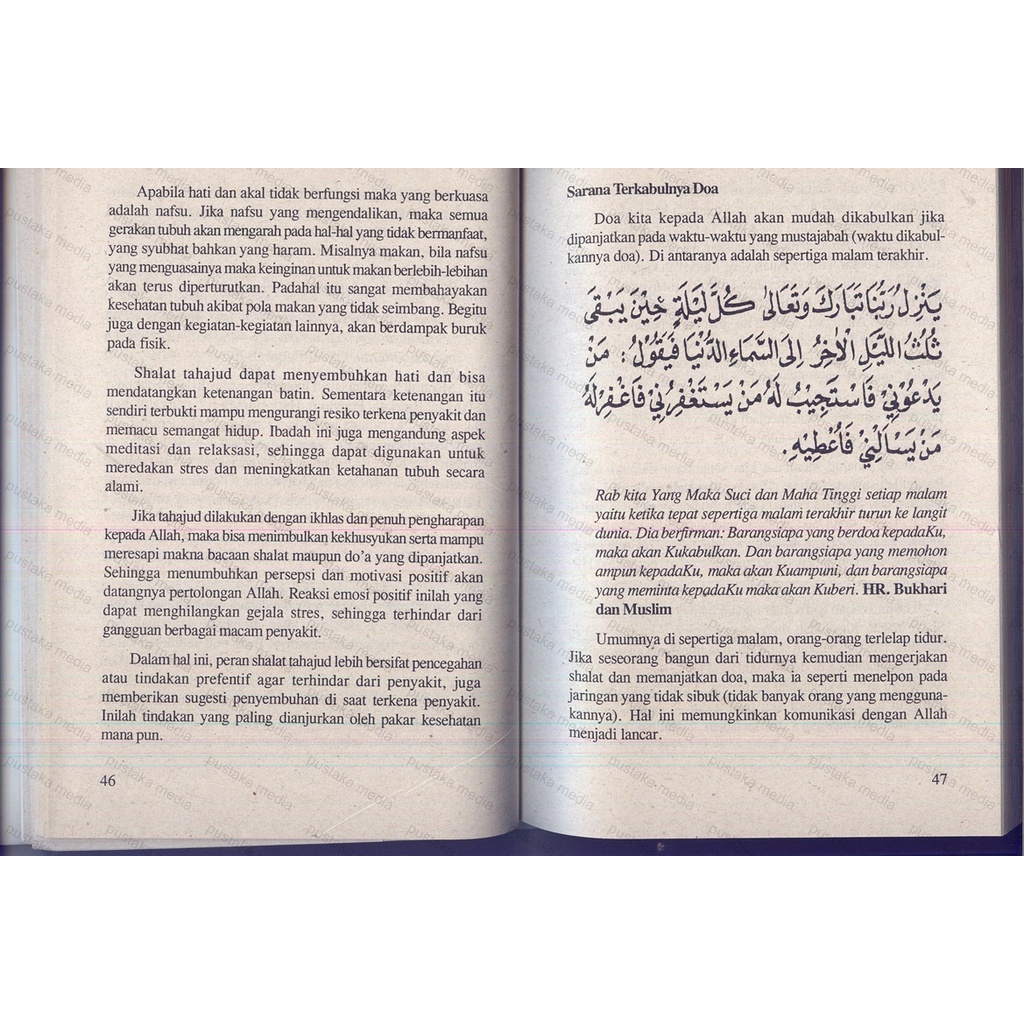 Apabila hati dan akal tidak berfungsi maka yang berkuasa
adalah nafsu. Jika nafsu yang mengendalikan, maka semua
gerakan tubuh akan mengarah pada hal-hal yang tidak bermanfaat,
yang syubhat bahkan yang haram. Misalnya makan, bila nafsu
yang menguasainya maka keinginan untuk makan berlebih-lebihan
akan terus diperturutkan. Padahal itu sangat membahayakan
kesehatan tubuh akibat pola makan yang tidak seimbang. Begitu
juga dengan kegiatan-kegiatan lainnya, akan berdampak buruk
pada fisik.
Shalat tahajud dapat menyembuhkan hati dan bisa
mendatangkan ketenangan batin. Sementara ketenangan itu
sendiri terbukti mampu mengurangi resiko terkena penyakit dan
memacu semangat hidup. Ibadah ini juga mengandung aspek
meditasi dan relaksasi, sehingga dapat digunakan untuk
meredakan stres dan meningkatkan ketahanan tubuh secara
alami.
Jika tahajud dilakukan dengan ikhlas dan penuh pengharapan
kepada Allah, maka bisa menimbulkan kekhusyukan serta mampu
meresapi makna bacaan shalat maupun do'a yang dipanjatkan.
Sehingga menumbuhkan persepsi dan motivasi positif akan
datangnya pertolongan Allah. Reaksi emosi positif inilah yang
dapat menghilangkan gejala stres, sehingga terhindar dari
gangguan berbagai macam penyakit.
Dalam hal ini, peran shalat tahajud lebih bersifat pencegahan
atau tindakan prefentif agar terhindar dari penyakit, juga
memberikan sugesti penyembuhan di saat terkena penyakit.
Inilah tindakan yang paling dianjurkan oleh pakar kesehatan
mana pun.
46
Sarana Terkabulnya Doa
Doa kita kepada Allah akan mudah dikabulkan jika
dipanjatkan pada waktu-waktu yang mustajabah (waktu dikabul-
kannya doa). Di antaranya adalah sepertiga malam terakhir.
يَنْزِلُ رَبُّنَا تَبَارَكَ وَتَعَالَى كُلَّ لَيْلَةٍ حِيْنَ يَبْقَى
ثُلُثُ اللَّيْلِ الْاٰخِرُ اِلَى السَّمَاءِ الدُّنْيَا فَيَقُوْلُ : مَنْ
يَدْعُوْنِيْ فَاسْتَجِيْبُ لَهُ مَنْ يَسْتَغْفِرُنِيْ فَاغْفِرْلَهُ
مَنْ يَسْاَلُنِيْ فَاُعْطِيْهِ.
Rab kita Yang Maka Suci dan Maha Tinggi setiap malam
yaitu ketika tepat sepertiga malam terakhir turun ke langit
dunia. Dia berfirman: Barangsiapa yang berdoa kepadaKu,
maka akan Kukabulkan. Dan barangsiapa yang memohon
ampun kepadaKu, maka akan Kuampuni, dan barangsiapa
yang meminta kepadaKu maka akan Kuberi. HR. Bukhari
dan Muslim
Umumnya di sepertiga malam, orang-orang terlelap tidur.
Jika seseorang bangun dari tidurnya kemudian mengerjakan
shalat dan memanjatkan doa, maka ia seperti menelpon pada
jaringan yang tidak sibuk (tidak banyak orang yang mengguna-
kannya). Hal ini memungkinkan komunikasi dengan Allah
menjadi lancar.
47
pustaka media